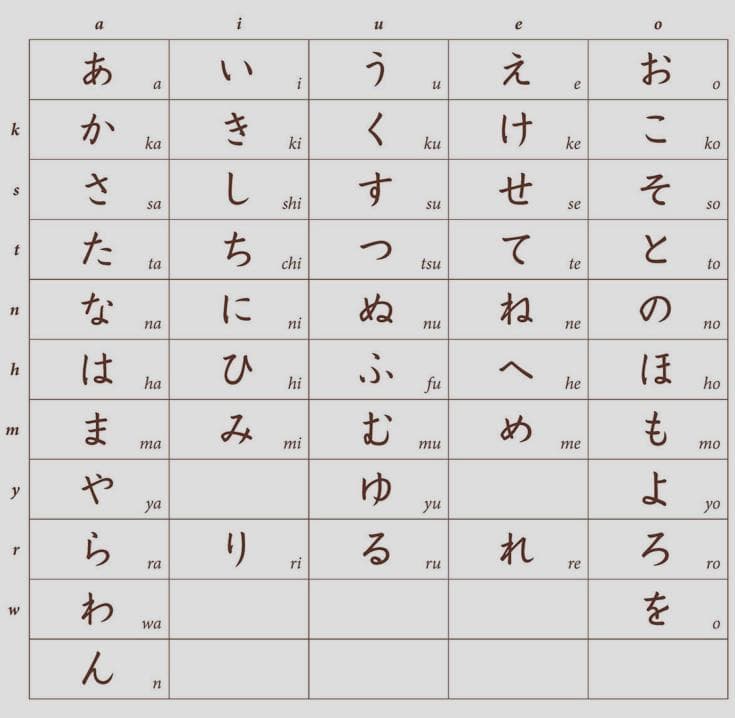 a i u e o
あ a い i う u え e お o
k か ka き ki く ku け ke こ ko
s さ sa し shi す su せ se そ so
t た ta ち chi つ tsu て te と to
n な na に ni ぬ nu ね ne の no
h は ha ひ hi ふ fu へ he ほ ho
m ま ma み mi む mu め me も mo
y や ya ゆ yu よ yo
r ら ra り ri る ru れ re ろ ro
w わ wa を o
ん n